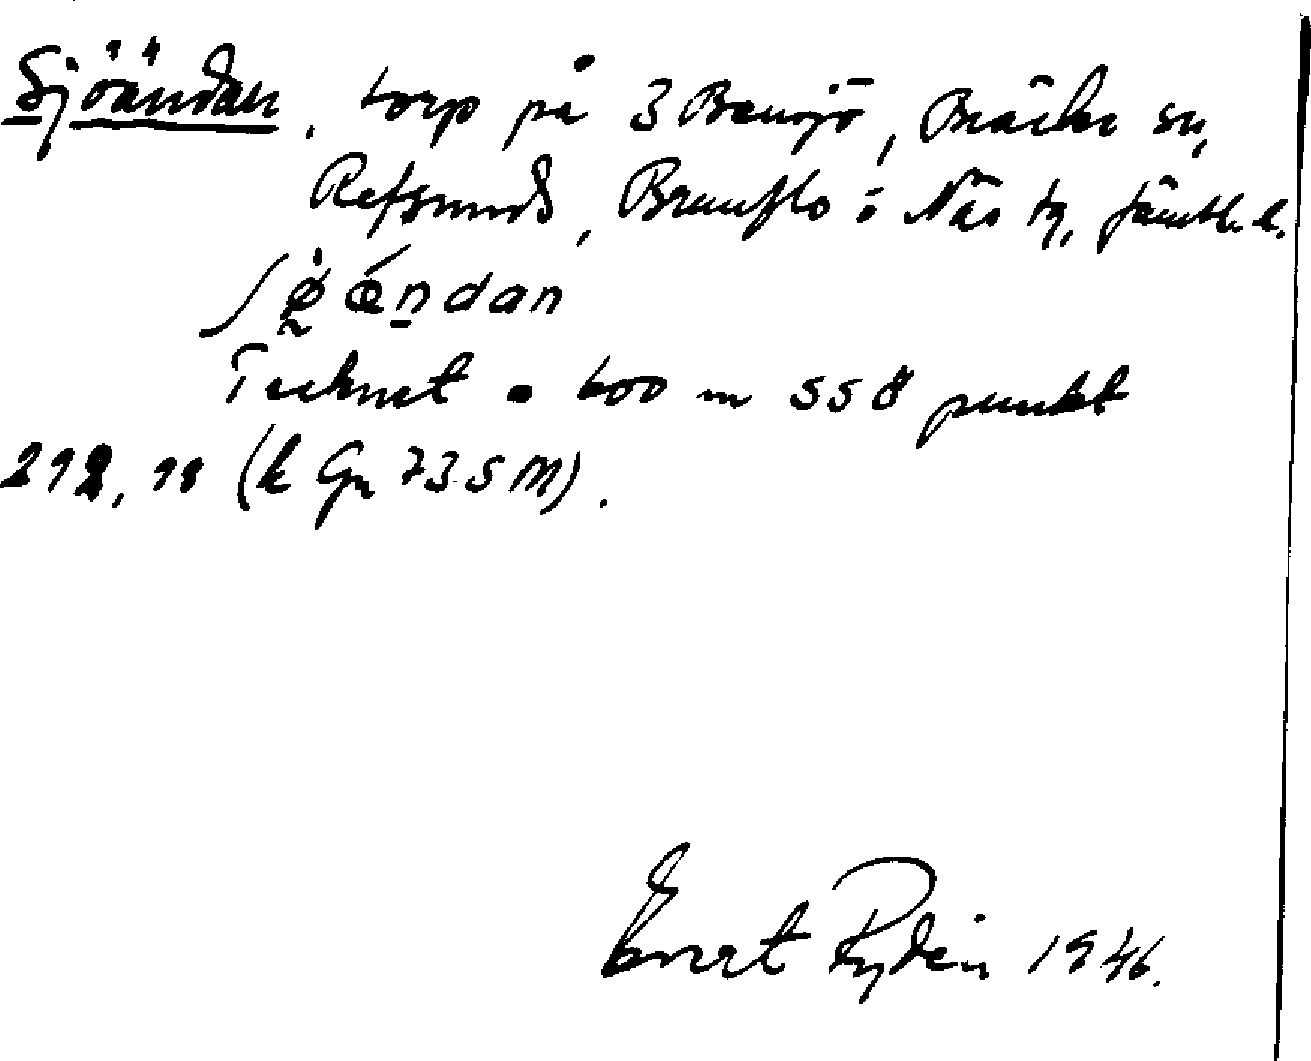 Sjöändan, torp på 3 Bensjö, Bräcke sn,
Refsunds, Brunflo o Näs tg, Jämtl. l.
ʃø̀ ǽndan
Tecknet • 600 m SSÖ punkt
212, 18 (k Gn 73 5 M).
Evert Rydén 1946.